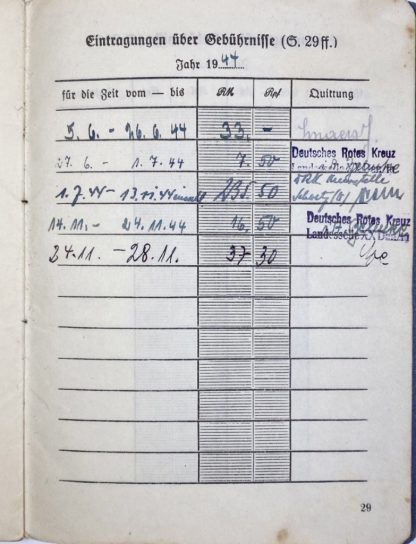 Eintragungen über Gebührnisse (S. 29 ff.)
Jahr 1944
für die Zeit vom — bis RM Rpf Quittung
5. 6. - 26. 6. 44 33. -
27. 6. - 1. 7. 44 7. 50 Deutsches Rotes Kreuz
1. 7. 44 - 13. 11. 44 235 50
14. 11. - 24. 11. 44 16. 50 Deutsches Rotes Kreuz
24. 11. - 28. 11. 37 30
29